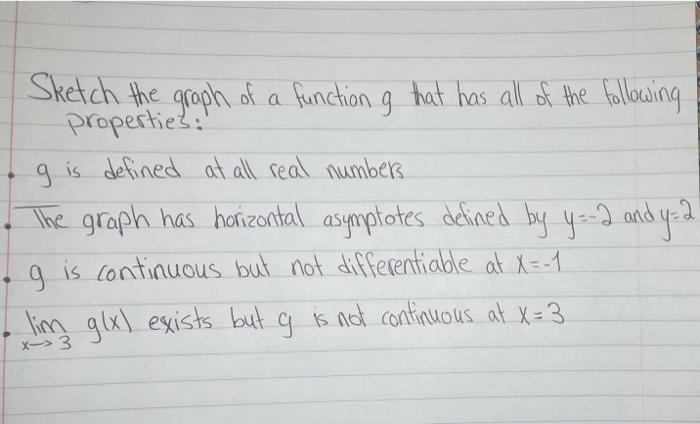 Sketch the graph of a function g that has all of the following
properties:
• g is defined at all real numbers
• The graph has horizontal asymptotes defined by y=-2 and y=2
• g is continuous but not differentiable at x=-1
• lim g(x) exists but g is not continuous at x=3
x→3